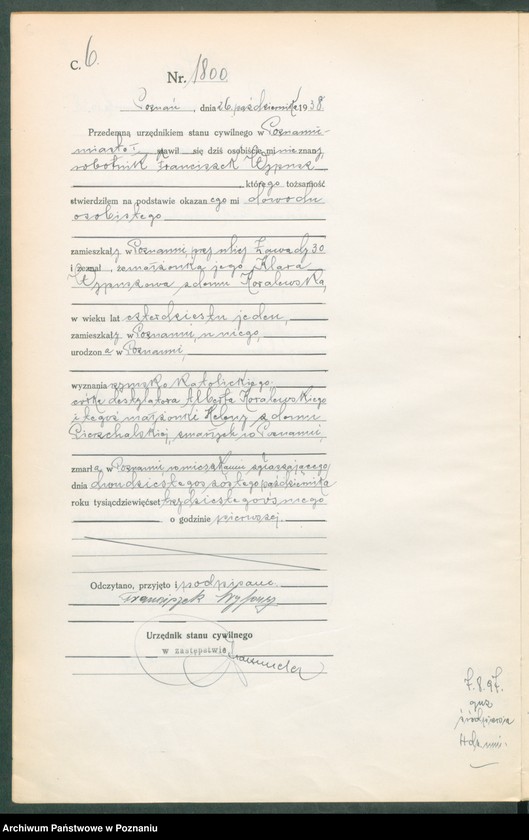 C. 6.
Nr. 1800
Poznań, dnia 26 października 1938.
Przedemną urzędnikiem stanu cywilnego w Poznaniu-
miasto, stawił się dziś osobiście mi nieznany,
robotnik Franciszek
którego tożsamość
stwierdziłem na podstawie okazanego mi dowodu
osobistego
zamieszkały w Poznaniu, przy ulicy Zawady 30
i zeznał, że małżonka jego Klara
z domu Koralewska,
w wieku lat czterdziestu jeden,
zamieszkały w Poznaniu, u niego,
urodzona w Poznaniu,
wyznania rzymsko katolickiego
córka destylatora Alberta Koralewskiego
i tegoż małżonki Heleny z domu
zmarłych w Poznaniu,
zmarła w Poznaniu w mieszkaniu zgłaszającego
dnia dwudziestego szóstego października
roku tysiącdziewięćset trzydziestego ósmego
o godzinie pierwszej.
Odczytano, przyjęto i podpisano
Franciszek
Urzędnik stanu cywilnego
w zastępstwie
7.8.97.
Archiwum Państwowe w Poznaniu